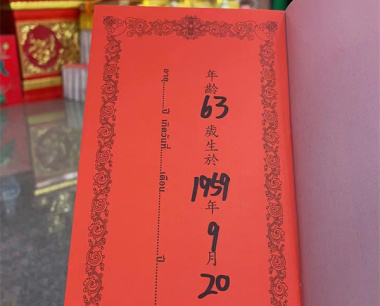 年齡 63 歲生於 1959 年 9 月 20
อายุ..........ปี เกิดวันที่..........เดือน....................ปี